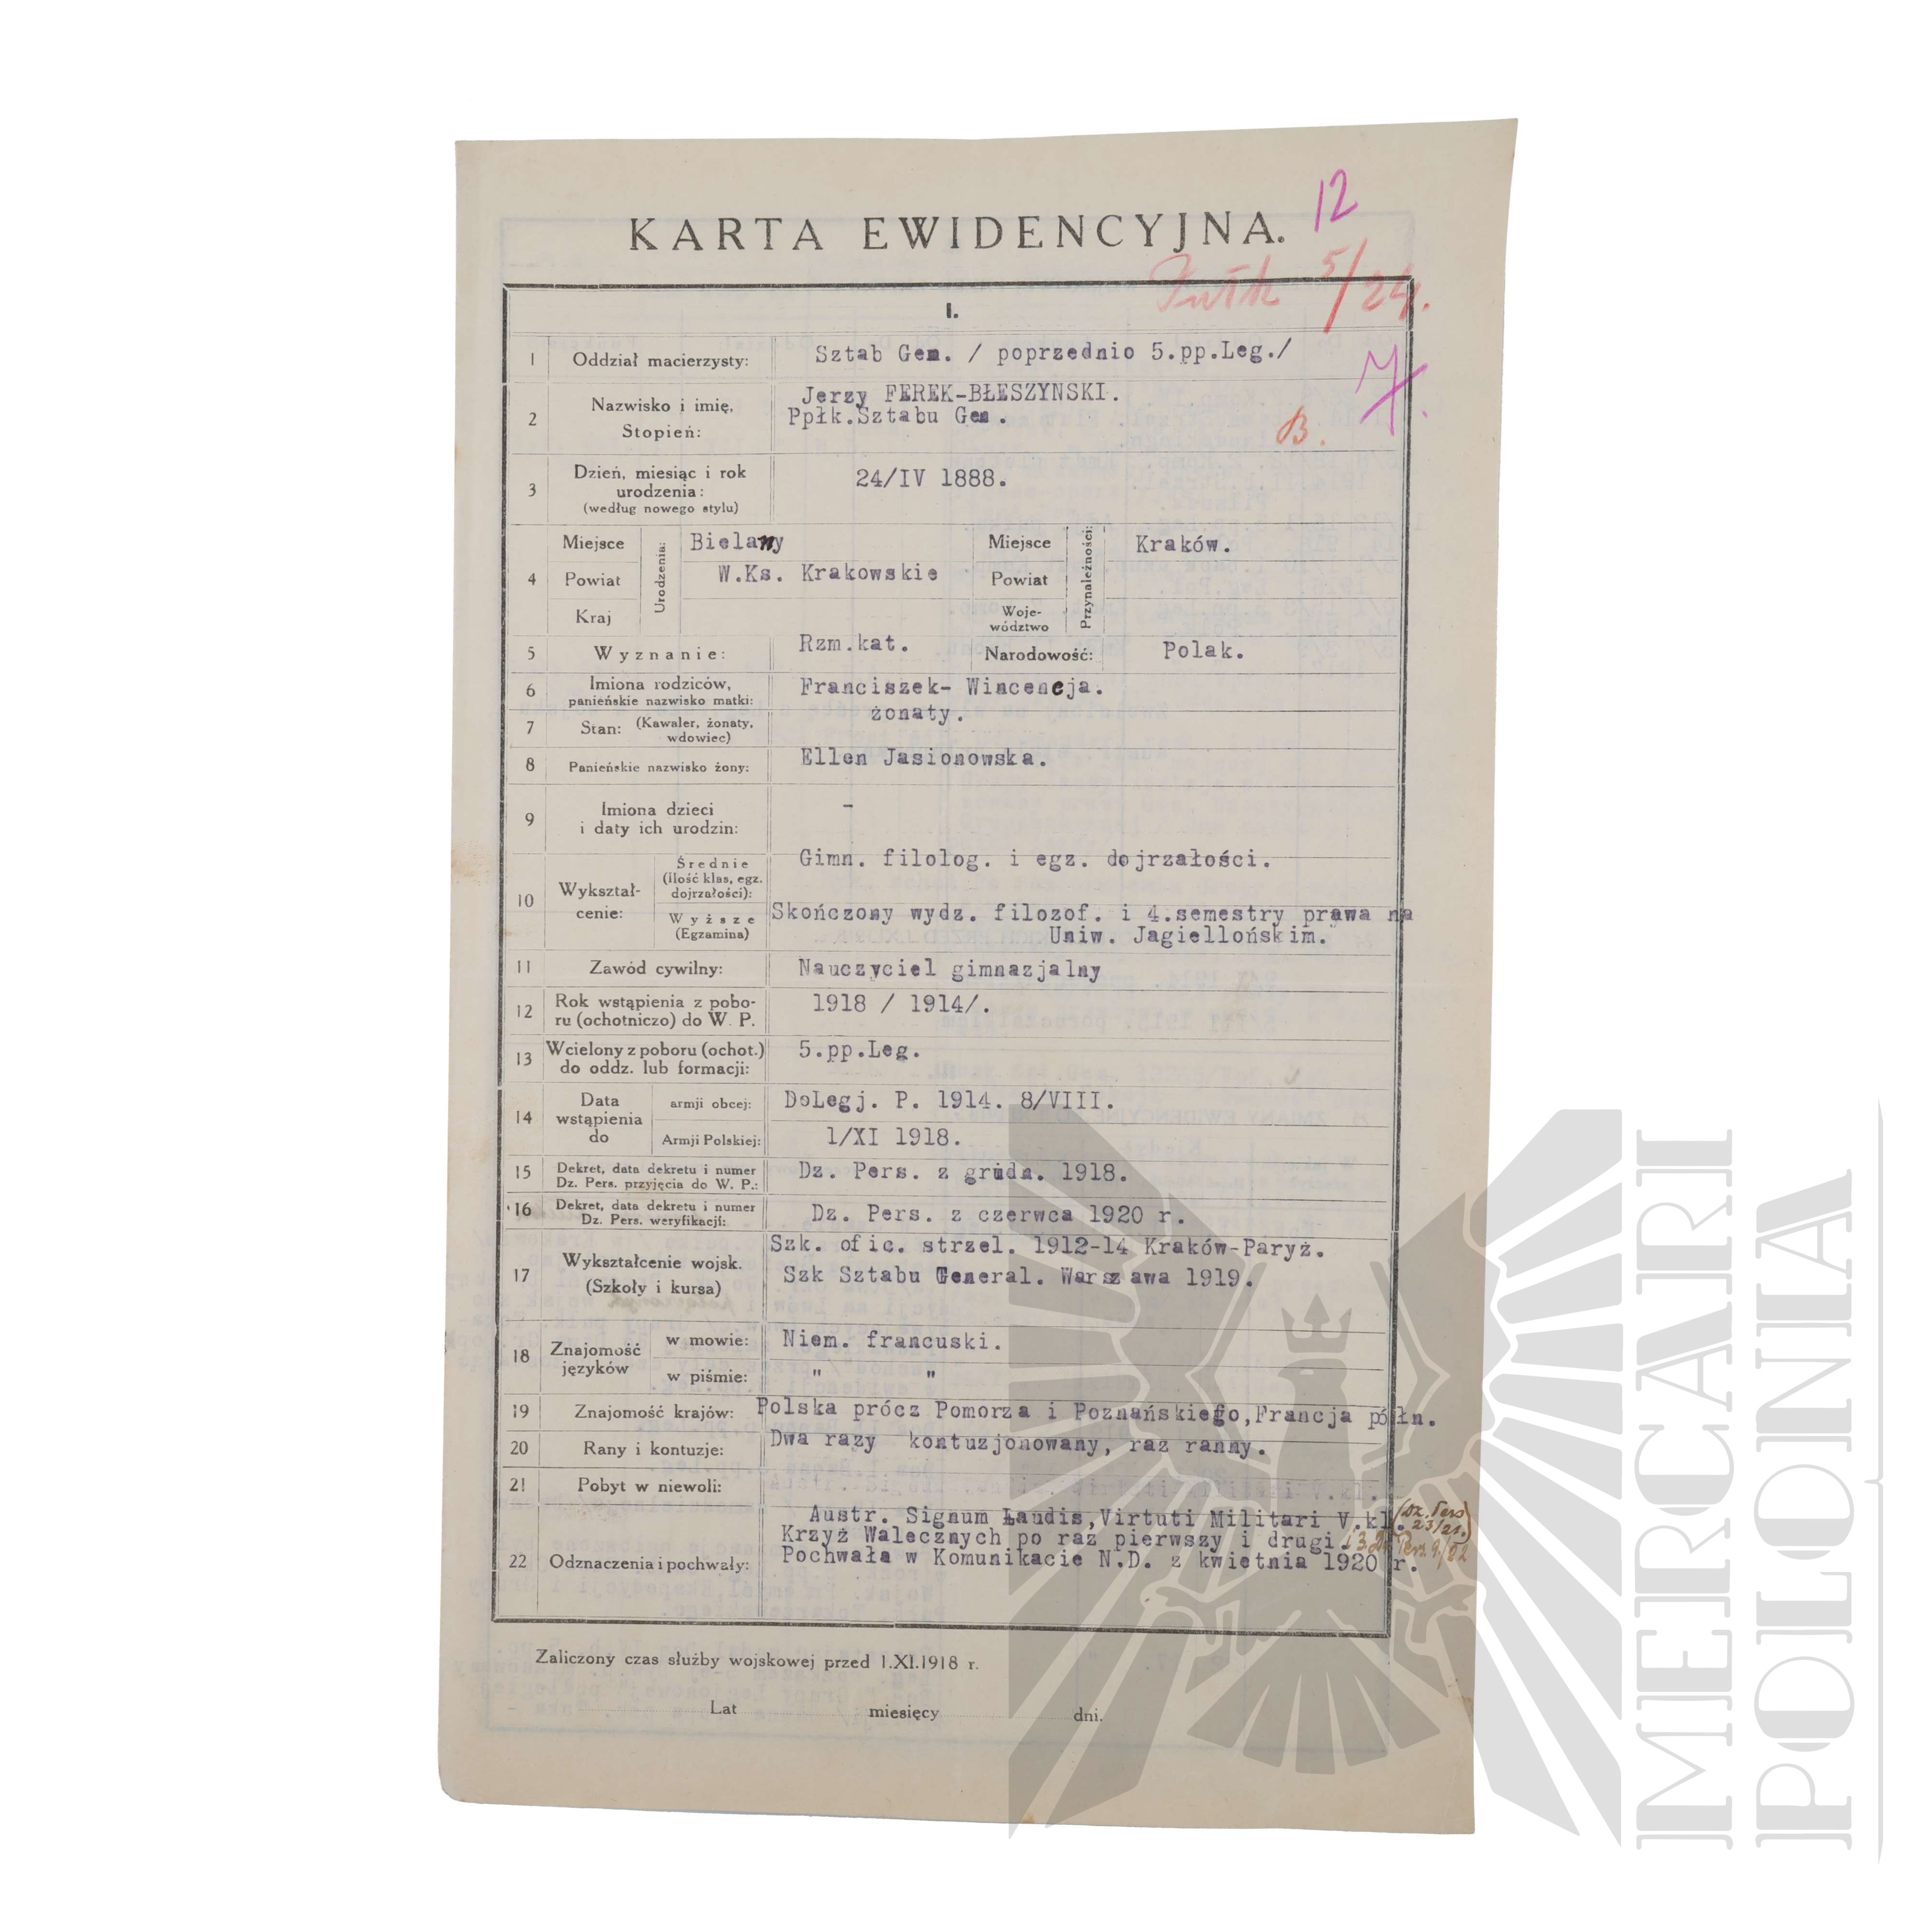 KARTA EWIDENCYJNA.
12
5/24.
I.
1 Oddział macierzysty: Sztab Gen. / poprzednio 5.pp.Leg./
2 Nazwisko i imię, Stopień: Jerzy FEREK-BŁESZYNSKI.
Ppłk.Sztabu Gen.
B.
3 Dzień, miesiąc i rok urodzenia: (według nowego stylu) 24/IV 1888.
4 Urodzenia: Miejsce Bielany Przynależności: Miejsce Kraków.
Powiat W.Ks. Krakowskie Powiat
Kraj Woje-wództwo
5 Wyznanie: Rzm.kat. Narodowość: Polak.
6 Imiona rodziców, panieńskie nazwisko matki: Franciszek- Wincencja.
7 Stan: (Kawaler, żonaty, wdowiec) żonaty.
8 Panieńskie nazwisko żony: Ellen Jasionowska.
9 Imiona dzieci i daty ich urodzin: -
10 Wykształ-cenie: Średnie (Ilość klas, egz. dojrzałości): Gimn. filolog. i egz. dojrzałości.
Wyższe (Egzamina) Skończony wydz. filozof. i 4.semestry prawa na
Uniw. Jagiellońskim.
11 Zawód cywilny: Nauczyciel gimnazjalny
12 Rok wstąpienia z pobo-ru (ochotniczo) do W. P. 1918 / 1914/.
13 Wcielony z poboru (ochot.) do oddz. lub formacji: 5.pp.Leg.
14 Data wstąpienia do armji obcej: DoLegj. P. 1914. 8/VIII.
Armji Polskiej: 1/XI 1918.
15 Dekret, data dekretu i numer Dz. Pers. przyjęcia do W. P.: Dz. Pers. z grudn. 1918.
16 Dekret, data dekretu i numer Dz. Pers. weryfikacji: Dz. Pers. z czerwca 1920 r.
17 Wykształcenie wojsk. (Szkoły i kursa) Szk. ofic. strzel. 1912-14 Kraków-Paryż.
Szk Sztabu General. Warszawa 1919.
18 Znajomość języków w mowie: Niem. francuski.
w piśmie: " "
19 Znajomość krajów: Polska prócz Pomorza i Poznańskiego,Francja półn.
20 Rany i kontuzje: Dwa razy kontuzjonowany, raz ranny.
21 Pobyt w niewoli:
22 Odznaczenia i pochwały: Austr. Signum Laudis,Virtuti Militari V.kl. (Dz. Pers 23/21.)
Krzyż Walecznych po raz pierwszy i drugi.
Pochwała w Komunikacie N.D. z kwietnia 1920 r.
Zaliczony czas służby wojskowej przed 1.XI.1918 r.
Lat miesięcy dni.
MERCARI
POLONIA